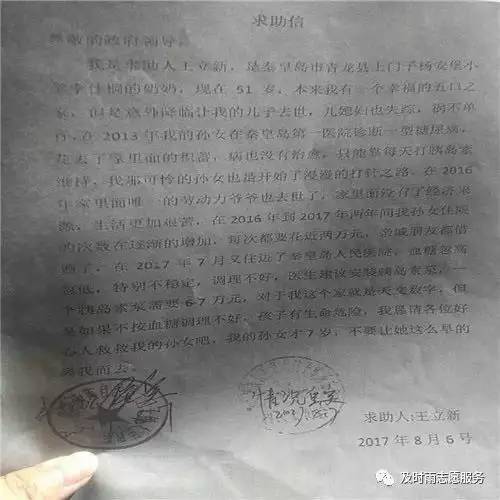 求助信
尊敬的政府领导：
我是求助人王立新，是秦皇岛市青龙县上门子杨安堡小
李佳桐的奶奶，现在 51 岁，本来我有一个幸福的五口之
家，但是意外降临让我的儿子去世，儿媳妇也失踪，祸不单
行，在 2013 年我的孙女在秦皇岛第一医院诊断一型糖尿病，
花去了家里面的积蓄，病也没有治愈，只能靠每天打胰岛素
维持，我那可怜的孙女也是开始了漫漫的打针之路，在 2016
年家里面唯一的劳动力爷爷也去世了，家里面没有了经济来
源，生活更加艰苦，在 2016 年到 2017 年两年间我孙女住院
的次数在逐渐的增加，每次都要花近两万元，亲戚朋友都借
遍了，在 2017 年 7 月又住进了秦皇岛人民医院，血糖忽高
忽低，特别不稳定，调理不好，医生建议安装胰岛素泵，一
个胰岛素泵需要 6-7 万元，对于我这个家就是天文数字，但
是如果不按血糖调理不好，孩子有生命危险，我恳请各位好
心人救救我的孙女吧，我的孙女才 7 岁，不要让她这么早的
离我而去。
情况属实
求助人:王立新
2017 年 8 月 6 号
及时雨志愿服务